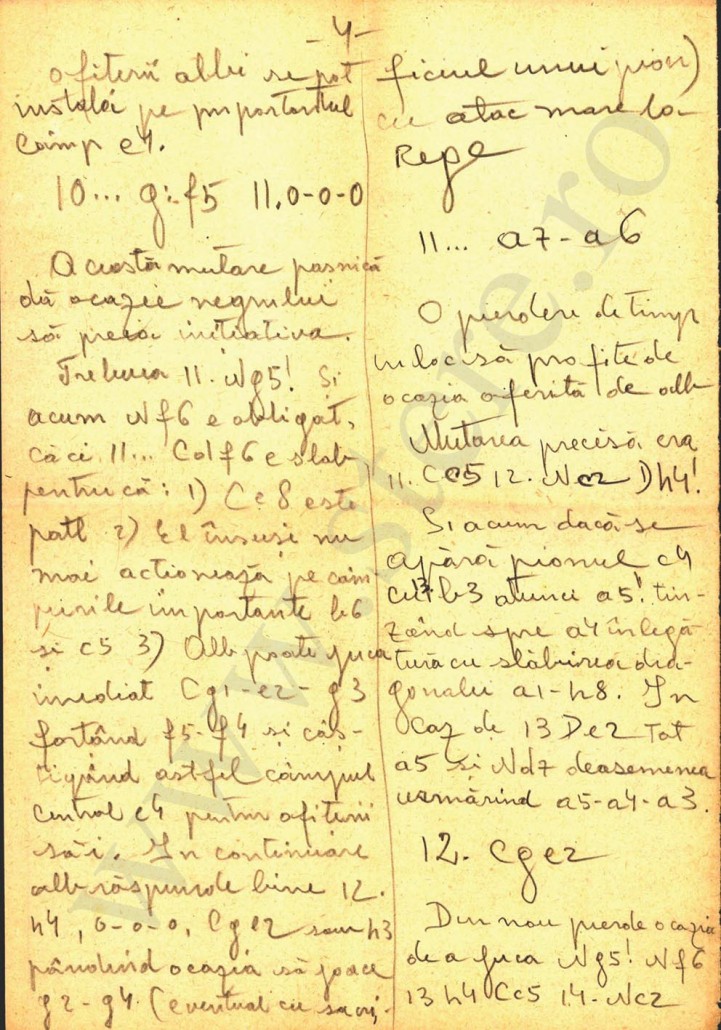 -4-
ofiterii albi se pot
instala pe importantul
câmp e4.
10... g:f5 11.0-0-0
Această mutare pasnică
dă ocazie negrului
să preia initiativa.
Trebuia 11. Ng5! Si
acum Nf6 e obligat,
căci 11... Cd1f6 e slab
pentru că: 1) Cc8 este
patl 2) El însusi nu
mai actionează pe câm-
purile importante b6
si c5 3) Alb poate juca
imediat Cg1-e2-g3
fortând f5-f4 si câs-
tigând astfel câmpul
central e4 pentru ofiterii
săi. In continuare
alb răspunde bine 12.
h4, 0-0-0, Cge2 sau h3
pândind ocazia să joace
g2-g4. (eventual cu sacri-
ficiul unui pion)
cu atac mare la
Rege
11... a7-a6
O pierdere de timp
in loc să profite de
ocazia oferită de alb
Mutarea precisă era
11. Cc5 12. Nc2 Dh4!
Si acum dacă se
apără pionul c4
cu 13. b3 atunci a5! tin-
zând spre a4 în legă-
tură cu slăbirea dia-
gonalei a1-h8. In
caz de 13 De2 tot
a5 si Nd7 deasemenea
urmărind a5-a4-a3.
12. Cge2
Din nou pierde ocazia
de a juca Ng5! Nf6
13 h4 Cc5 14-Nc2
www.stere.ro